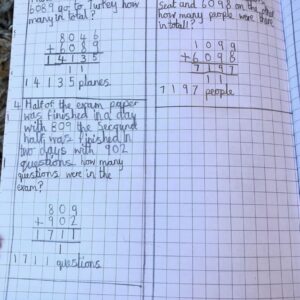 6089 go to Turkey how
many in total?
8046
+ 6089
14135
11
14135 planes
4 Half of the exam paper
was finished in a day
with 809 the Second
half was finished in
two days with 902
questions. how many
questions were in the
exam?
809
+ 902
1711
1
1711 questions
Seat and 6098 on the other
how many people were there
in total!
1099
+ 6098
7197
11
7197 people